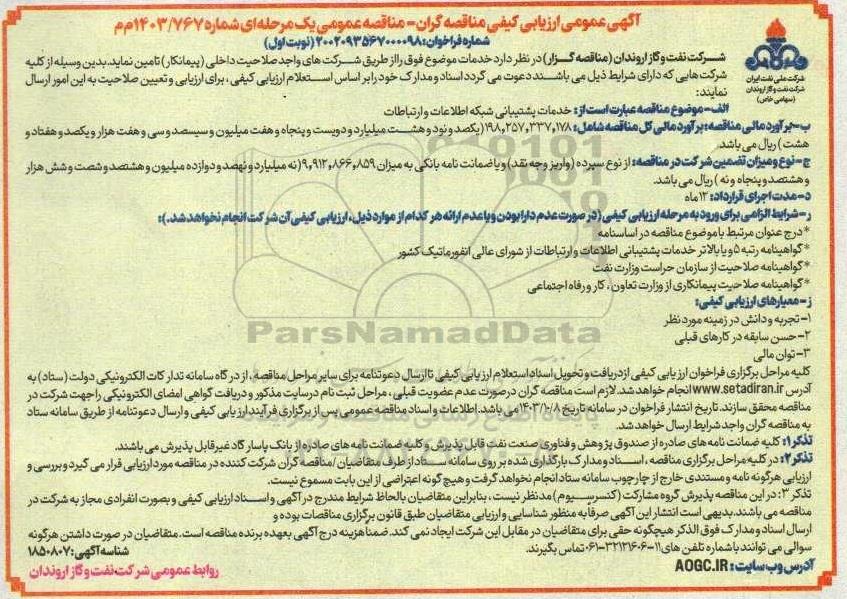 آگهی عمومی ارزیابی کیفی مناقصه گران - مناقصه عمومی یک مرحله ای شماره ۱۴۰۳/۷۶۷م م
شماره فراخوان: ۲۰۰۲۰۹۳۵۶۷۰۰۰۰۹۸ (نوبت اول)
شرکت ملی نفت ایران
شرکت نفت و گاز اروندان
(سهامی خاص)
شرکت نفت و گاز اروندان (مناقصه گزار) در نظر دارد خدمات موضوع فوق را از طریق شرکت های واجد صلاحیت داخلی (پیمانکار) تامین نماید. بدین وسیله از کلیه
شرکت هایی که دارای شرایط ذیل می باشند دعوت می گردد اسناد و مدارک خود را بر اساس استعلام ارزیابی کیفی، برای ارزیابی و تعیین صلاحیت به این امور ارسال
نمایند:
الف- موضوع مناقصه عبارت است از: خدمات پشتیبانی شبکه اطلاعات و ارتباطات
ب- برآورد مالی مناقصه: برآورد مالی کل مناقصه شامل: ۱۹۸,۲۵۷,۳۳۷,۱۷۸ (یکصد و نود و هشت میلیارد و دویست و پنجاه و هفت میلیون و سیصد و سی و هفت هزار و یکصد و هفتاد و
هشت) ریال می باشد.
ج- نوع و میزان تضمین شرکت در مناقصه: از نوع سپرده (واریز وجه نقد) و یا ضمانت نامه بانکی به میزان ۹,۹۱۲,۸۶۶,۸۵۹ (نه میلیارد و نهصد و دوازده میلیون و هشتصد و شصت و شش هزار
و هشتصد و پنجاه و نه) ریال می باشد.
د- مدت اجرای قرارداد: ۱۲ ماه
ر- شرایط الزامی برای ورود به مرحله ارزیابی کیفی (در صورت عدم دارا بودن و یا عدم ارائه هر کدام از موارد ذیل، ارزیابی کیفی آن شرکت انجام نخواهد شد.):
* درج عنوان مرتبط با موضوع مناقصه در اساسنامه
* گواهینامه رتبه ۵ و یا بالاتر خدمات پشتیبانی اطلاعات و ارتباطات از شورای عالی انفورماتیک کشور
* گواهینامه صلاحیت از سازمان حراست وزارت نفت
* گواهینامه صلاحیت پیمانکاری از وزارت تعاون، کار و رفاه اجتماعی
ز- معیارهای ارزیابی کیفی:
۱- تجربه و دانش در زمینه مورد نظر
۲- حسن سابقه در کارهای قبلی
۳- توان مالی
ParsNamadData
کلیه مراحل برگزاری فراخوان ارزیابی کیفی از دریافت و تحویل اسناد استعلام ارزیابی کیفی تا ارسال دعوتنامه برای سایر مراحل مناقصه، از درگاه سامانه تدارکات الکترونیکی دولت (ستاد) به
آدرس www.setadiran.ir انجام خواهد شد. لازم است مناقصه گران در صورت عدم عضویت قبلی، مراحل ثبت نام در سایت مذکور و دریافت گواهی امضای الکترونیکی را جهت شرکت در
مناقصه محقق سازند. تاریخ انتشار فراخوان در سامانه تاریخ ۱۴۰۳/۱۰/۸ می باشد. اطلاعات و اسناد مناقصه عمومی پس از برگزاری فرآیند ارزیابی کیفی و ارسال دعوتنامه از طریق سامانه ستاد
به مناقصه گران واجد شرایط ارسال خواهد شد.
تذکر۱: کلیه ضمانت نامه های صادره از صندوق پژوهش و فناوری صنعت نفت قابل پذیرش و کلیه ضمانت نامه های صادره از بانک پاسارگاد غیر قابل پذیرش می باشند.
تذکر۲: در کلیه مراحل برگزاری مناقصه، اسناد و مدارک بارگذاری شده بر روی سامانه ستاد از طرف متقاضیان/مناقصه گران شرکت کننده در مناقصه مورد ارزیابی قرار می گیرد و بررسی و
ارزیابی هرگونه نامه و مستندی خارج از چارچوب سامانه ستاد انجام نخواهد گرفت و هیچ گونه اعتراضی از این بابت مسموع نیست.
تذکر ۳: در این مناقصه پذیرش گروه مشارکت (کنسرسیوم) مد نظر نیست، بنابراین متقاضیان بالحاظ شرایط مندرج در آگهی و اسناد ارزیابی کیفی و بصورت انفرادی مجاز به شرکت در
مناقصه می باشند. بدیهی است انتشار این آگهی صرفا به منظور شناسایی و ارزیابی متقاضیان طبق قانون برگزاری مناقصات بوده و
ارسال اسناد و مدارک فوق الذکر هیچگونه حقی برای متقاضیان در مقابل این شرکت ایجاد نمی کند. ضمنا هزینه درج آگهی بعهده برنده مناقصه است. متقاضیان در صورت داشتن هرگونه
سوالی می توانند با شماره تلفن های ۱۱-۳۲۱۲۱۶۰۶-۰۶۱ تماس بگیرند.
شناسه آگهی: ۱۸۵۰۸۰۷
آدرس وب سایت: AOGC.IR
روابط عمومی شرکت نفت و گاز اروندان